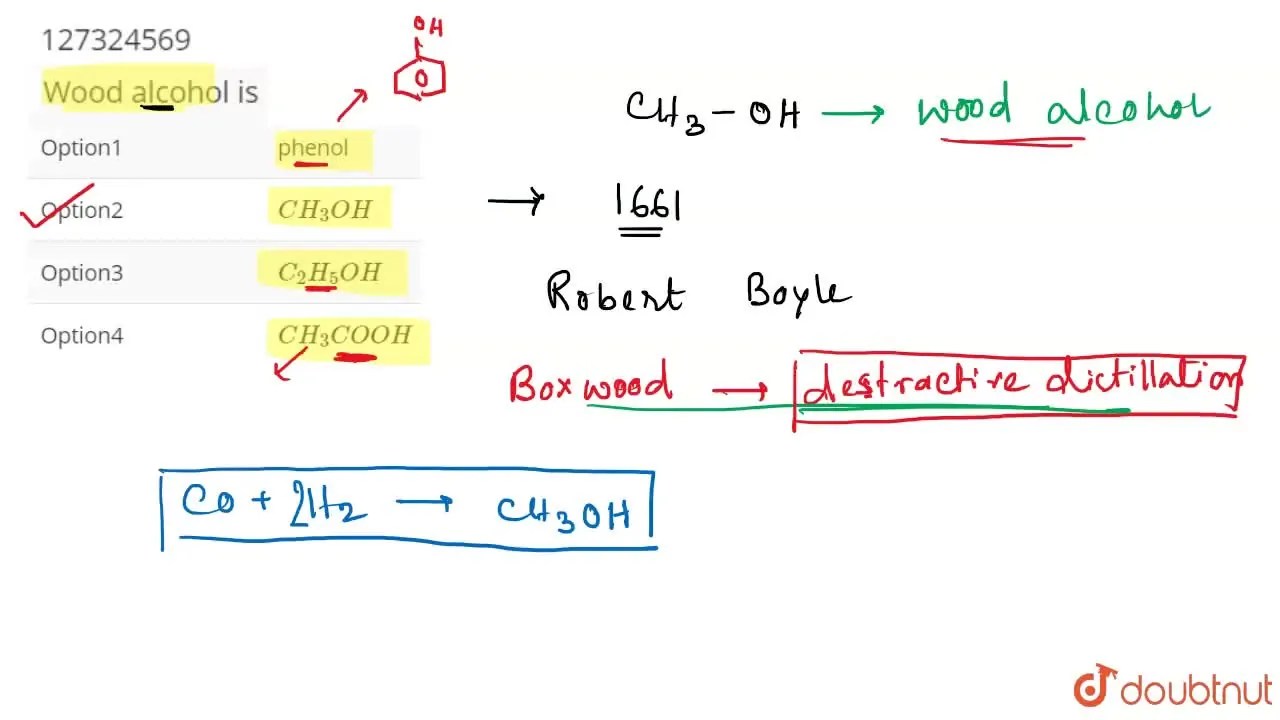 127324569
Wood alcohol is
Option1 phenol
Option2 CH₃OH
Option3 C₂H₅OH
Option4 CH₃COOH
OH
CH₃-OH → wood alcohol
→ 1661
Robert Boyle
Boxwood → destractive dictillation
Co + 2H₂ → CH₃OH
doubtnut